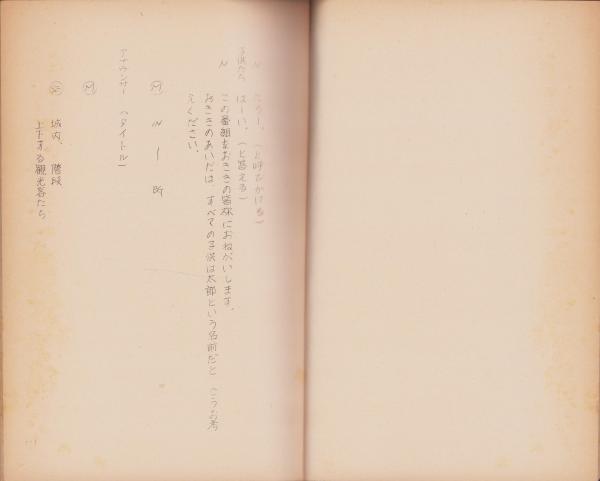 N　たろー。（と呼びかける）
子供たち　はーい。（と答える）
N　この番組をおききの皆様におねがいします。
おききのあいだは、すべての子供は太郎という名前だと（こうお考
えください。
Ⓜ　IN ー 断
アナウンサー　（タイトル）
Ⓜ
城内、階段
上下する観光客たち